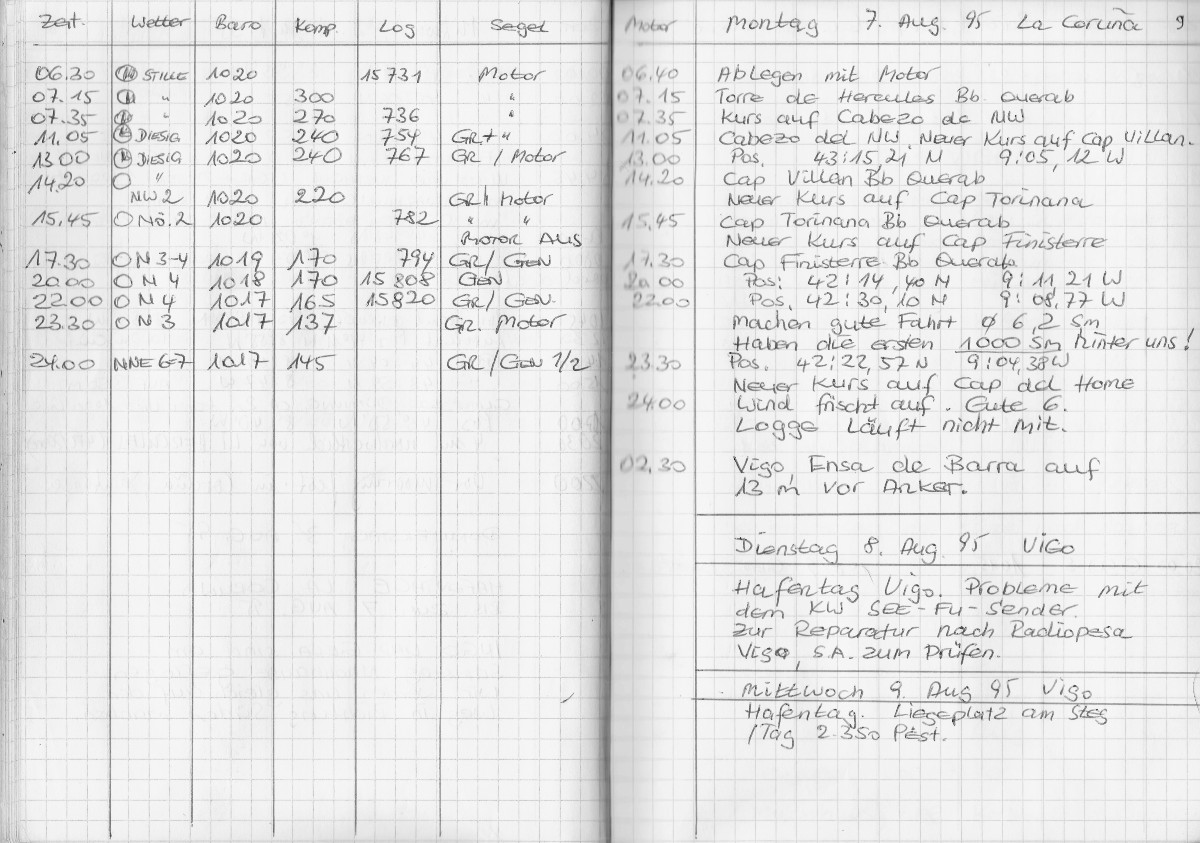 Zeit Wetter Baro Komp. Log Segel
06.30 STILLE 1020 15731 Motor
07.15 " 1020 300 "
07.35 " 1020 270 736 "
11.05 DIESIG 1020 240 754 GR + "
13.00 DIESIG 1020 240 767 GR / Motor
14.20 "
NW 2 1020 220 GR / Motor
15.45 NÖ. 2 1020 782 " "
MOTOR AUS
17.30 N 3-4 1019 170 794 GR / GEN
20.00 N 4 1018 170 15808 GEN
22.00 N 4 1017 165 15820 GR / GEN.
23.30 N 3 1017 137 GR. Motor
24.00 NNE 6-7 1017 145 GR / GEN 1/2
Motor Montag 7. Aug. 95 La Coruña 9
06.40 Ablegen mit Motor
07.15 Torre de Hercules Bb. Querab
07.35 Kurs auf Cabezo de NW
11.05 Cabezo del NW. Neuer Kurs auf Cap Villan.
13.00 Pos. 43:15,21 N 9:05,12 W
14.20 Cap Villan Bb Querab
Neuer Kurs auf Cap Torinana
15.45 Cap Torinana Bb Querab
Neuer Kurs auf Cap Finisterre
17.30 Cap Finisterre Bb Querab
20.00 Pos: 42:14,40 N 9:11,21 W
22.00 Pos. 42:30,10 N 9:08,77 W
Machen gute Fahrt Ø 6,2 Sm
Haben die ersten 1000 Sm hinter uns!
23.30 Pos. 42:22,57 N 9:04,38 W
Neuer Kurs auf Cap del Home
24.00 Wind frischt auf. Gute 6.
Logge läuft nicht mit.
02.30 Vigo, Ensa de Barra auf
13 m vor Anker.
Dienstag 8. Aug. 95 VIGO
Hafentag Vigo. Probleme mit
dem KW SEE-FU-Sender.
Zur Reparatur nach Radiopesa
Vigo, S.A. zum Prüfen.
Mittwoch 9. Aug 95 Vigo
Hafentag. Liegeplatz am Steg
/Tag 2.350 Pest.